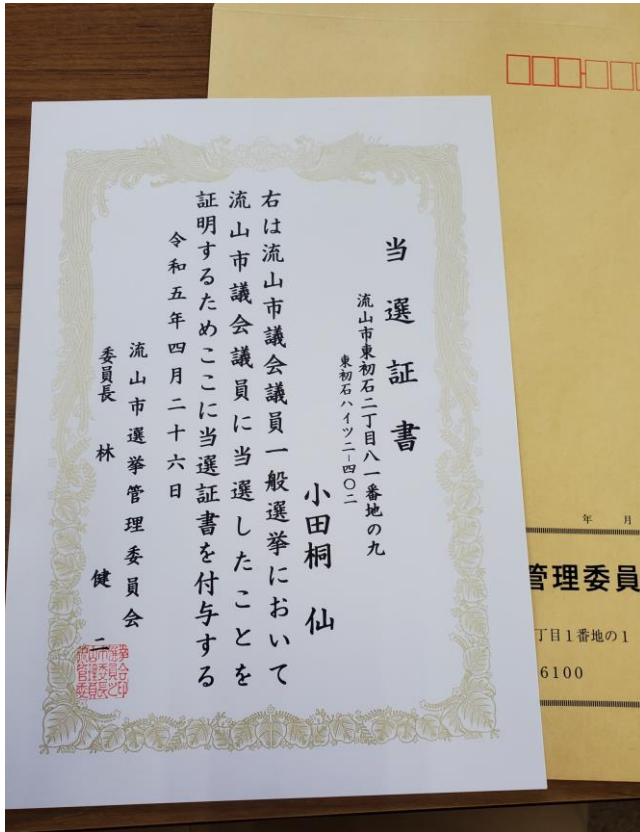 当選証書
流山市東初石二丁目八一番地の九
東初石ハイツ二-四〇二
小田桐 仙
右は流山市議会議員一般選挙において
流山市議会議員に当選したことを
証明するためここに当選証書を付与する
令和五年四月二十六日
流山市選挙管理委員会
委員長 林 健二
年 月
管理委員
丁目1番地の1
6100